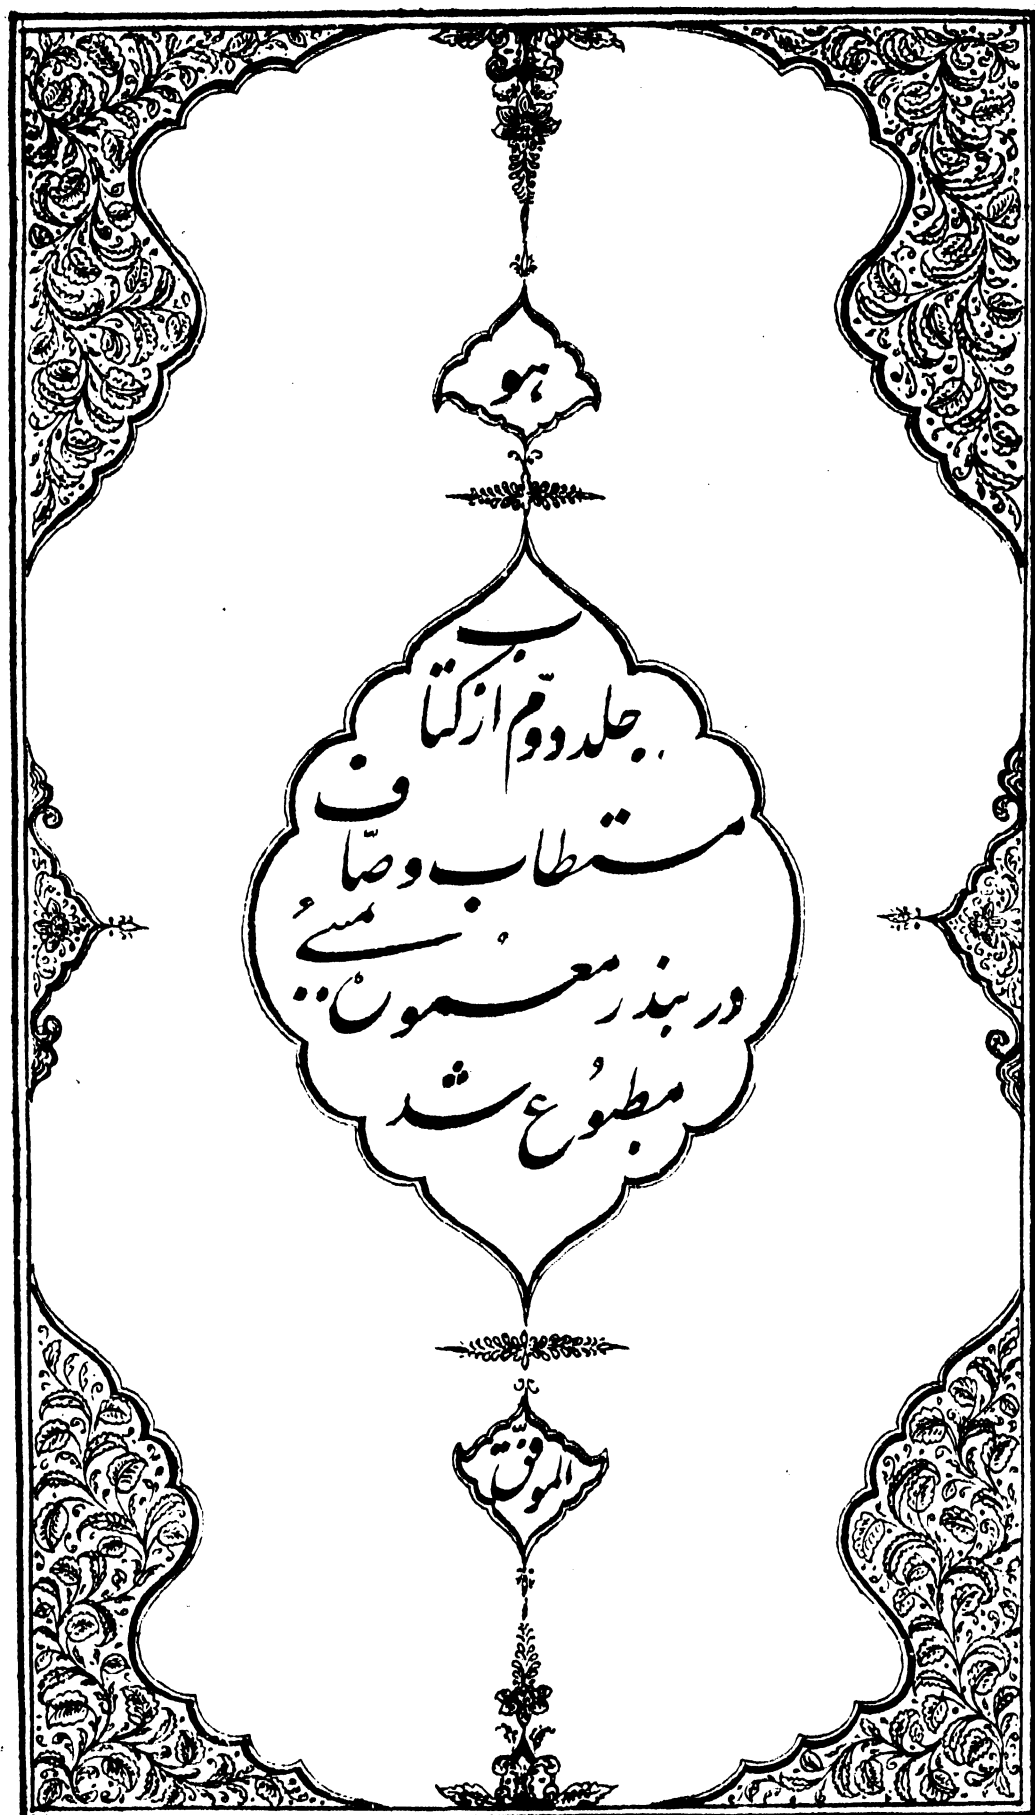 هو
جلد دوّم از کتاب
مستطاب وصّاف
در بندر معمورهٔ بمبئی
مطبوع شد
الموفّق